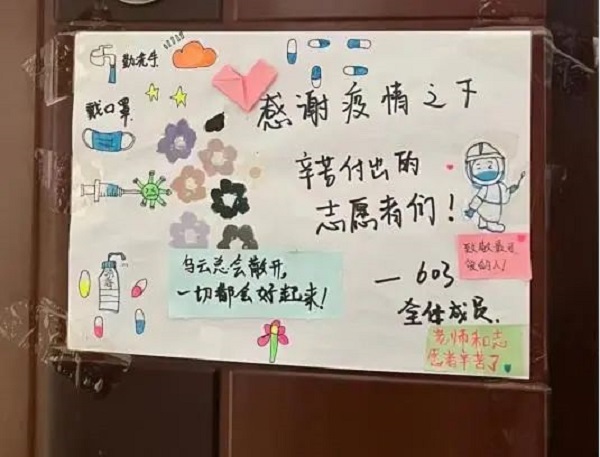 勤洗手
戴口罩
感谢疫情之下
辛苦付出的
志愿者们！
致敬最可
爱的人！
乌云总会散开，
一切都会好起来！
— 603
全体成员.
老师和志
愿者辛苦了